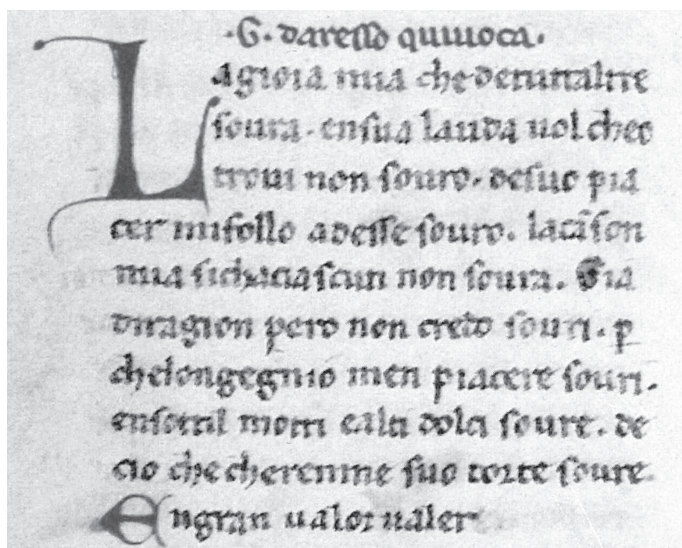 ·G· daresso quiuoca·
Lagioia mia che detuttaltre
soura· ensua lauda uol cheo
troui non souro· desuo pia
cer misollo adesse souro· lacāson
mia sichaciascun non soura· Sia
diragion pero non credo souri· p
chelongegnio men piacere souri·
ensottil motti ealti dolci soure· de
cio checheremme suo torte soure
Engran ualor ualer